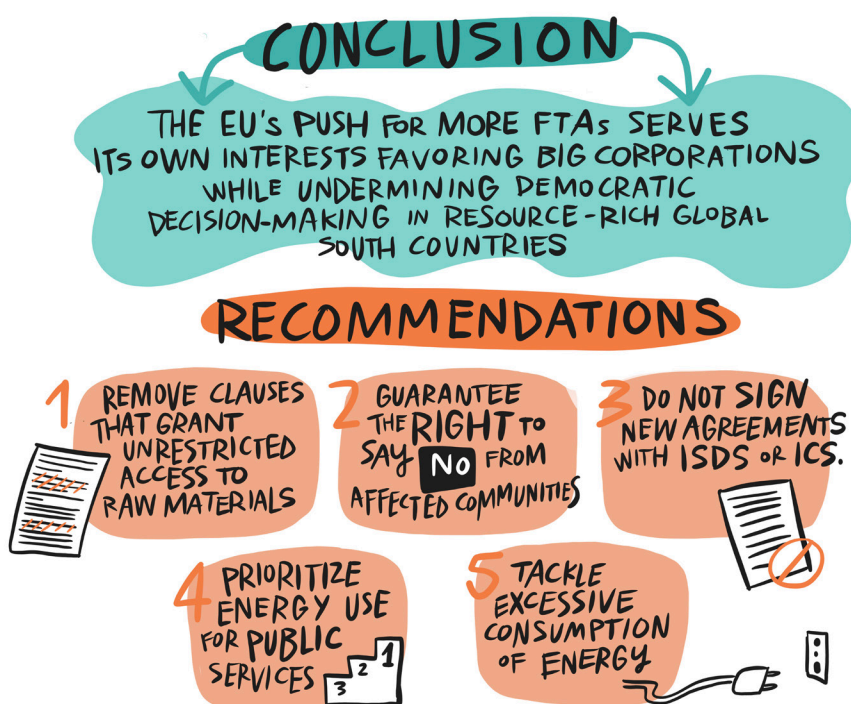 CONCLUSION
THE EU'S PUSH FOR MORE FTAs SERVES
ITS OWN INTERESTS FAVORING BIG CORPORATIONS
WHILE UNDERMINING DEMOCRATIC
DECISION-MAKING IN RESOURCE-RICH GLOBAL
SOUTH COUNTRIES
RECOMMENDATIONS
1
REMOVE CLAUSES
THAT GRANT
UNRESTRICTED
ACCESS TO
RAW MATERIALS
2
GUARANTEE
THE RIGHT TO
SAY NO FROM
AFFECTED COMMUNITIES
3
DO NOT SIGN
NEW AGREEMENTS
WITH ISDS OR ICS.
4
PRIORITIZE
ENERGY USE
FOR PUBLIC
SERVICES
1
2
3
5
TACKLE
EXCESSIVE
CONSUMPTION
OF ENERGY